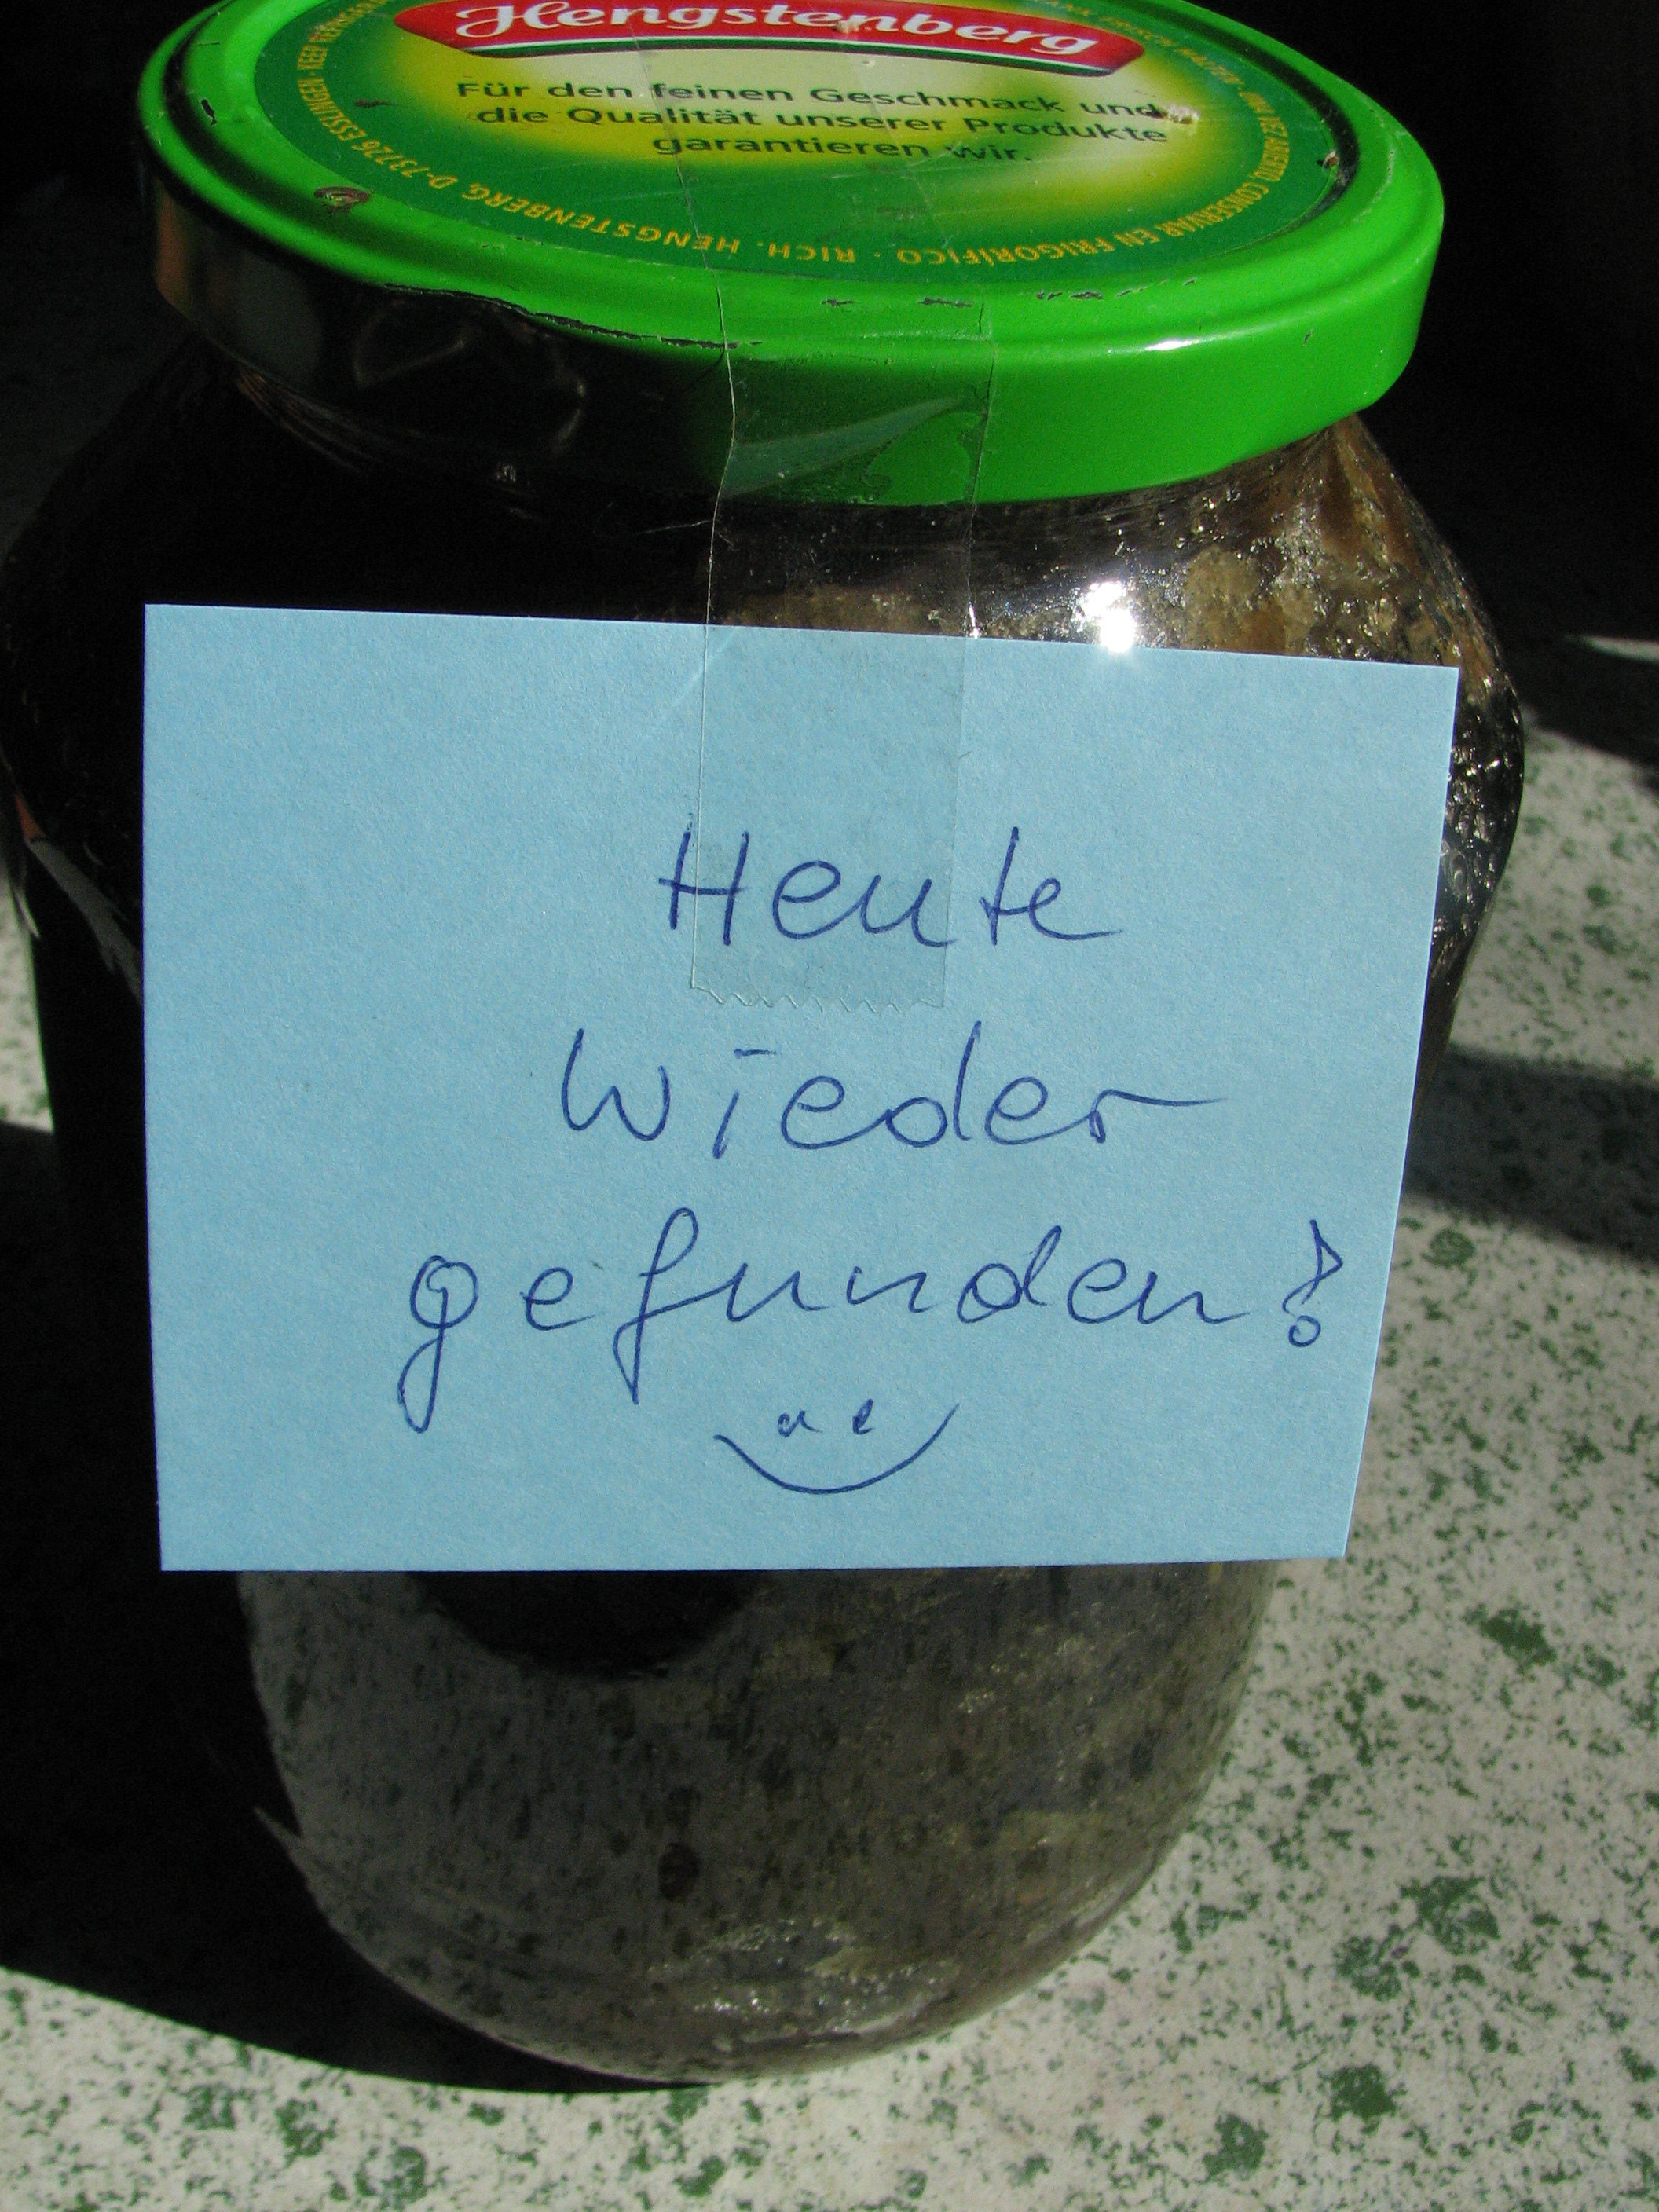 Hengstenberg
Für den feinen Geschmack und
die Qualität unserer Produkte
garantieren wir.
CONSERVAR EN FRIGORÍFICO · RICH. HENGSTENBERG, D-73726 ESSLINGEN · KEEP
Heute
wieder
gefunden!